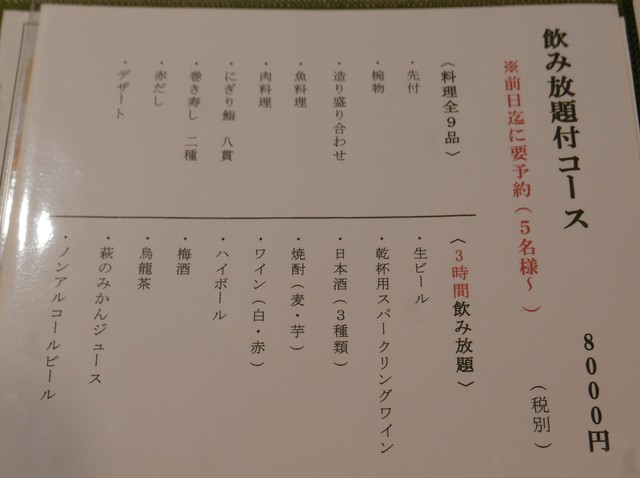 飲み放題付コース 8000円
※前日迄に要予約(5名様~ ) (税別)
〈料理全9品〉
・先付
・椀物
・造り盛り合わせ
・魚料理
・肉料理
・にぎり鮨 八貫
・巻き寿し 二種
・赤だし
・デザート
〈3時間飲み放題〉
・生ビール
・乾杯用スパークリングワイン
・日本酒(3種類)
・焼酎(麦・芋)
・ワイン(白・赤)
・ハイボール
・梅酒
・烏龍茶
・萩のみかんジュース
・ノンアルコールビール